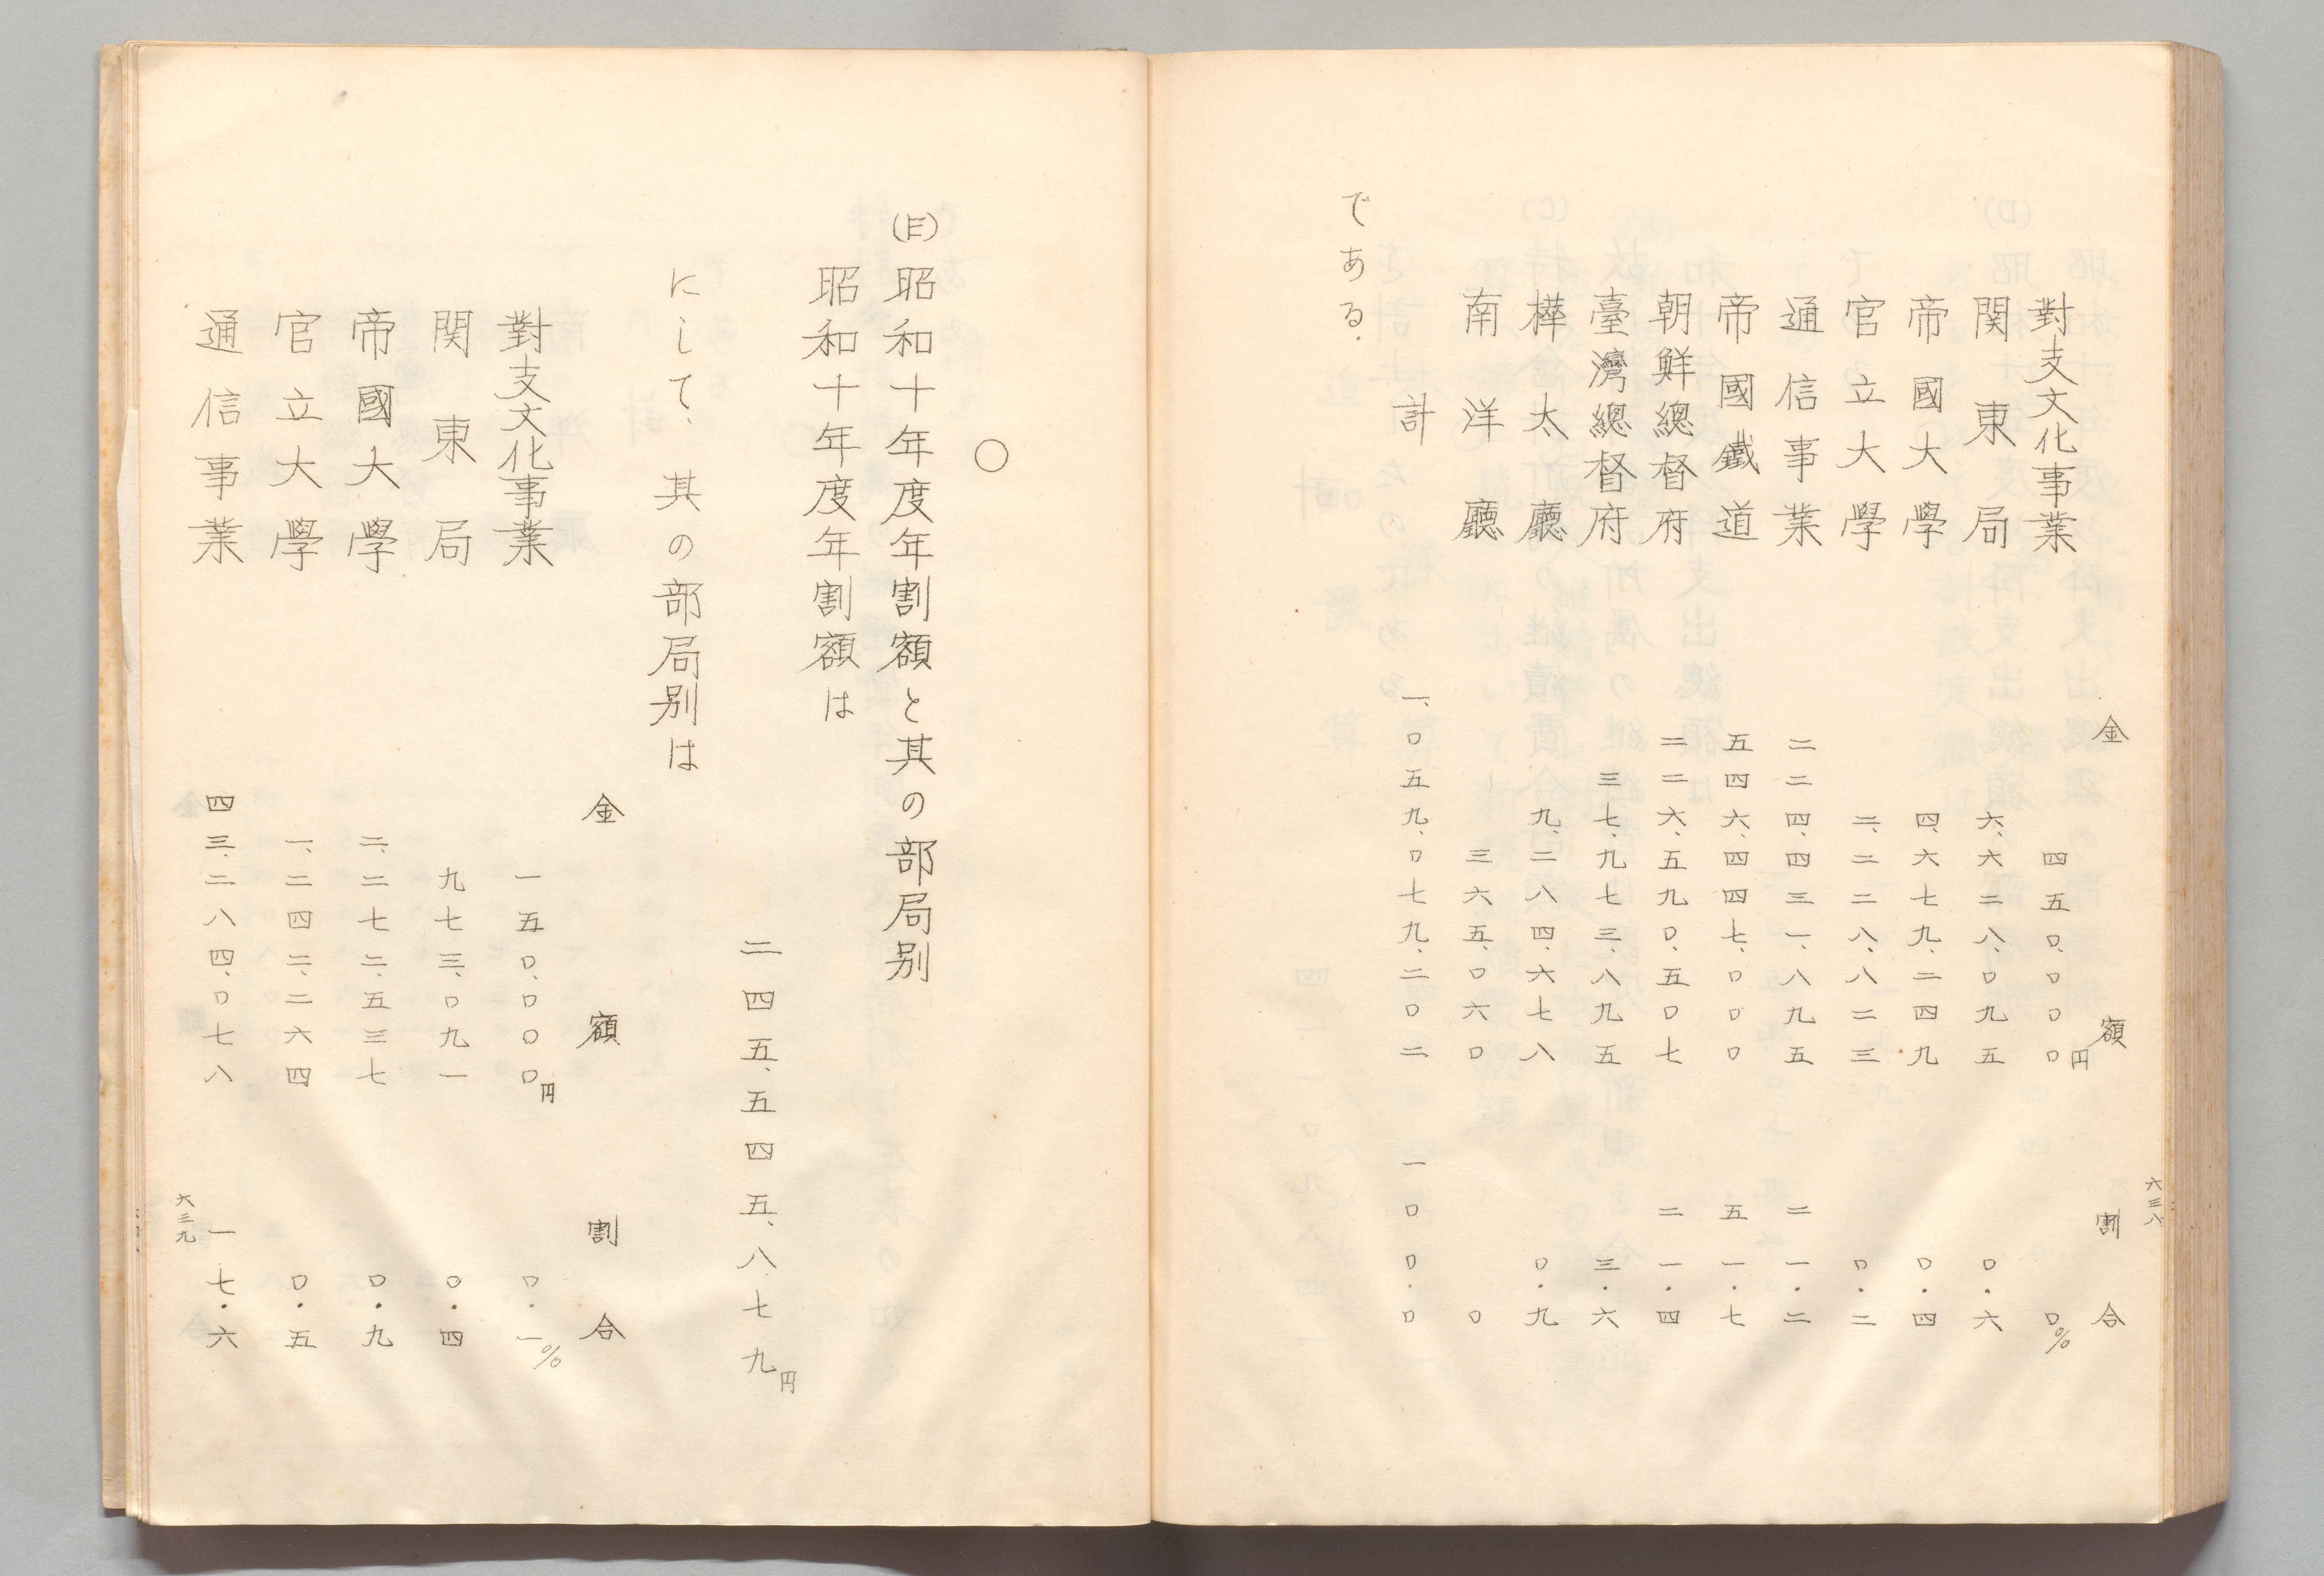 六三八
金額 割合
對支文化事業 四五〇、〇〇〇円 〇%
関東局 六、六二八、〇九五 〇.六
帝國大學 四、六七九、二四九 〇.四
官立大學 二、二二八、八二三 〇.二
通信事業 二二四、四三一、八九五 二一.二
帝國鐵道 五四六、四四七、〇〇〇 五一.七
朝鮮總督府 二二六、五九〇、五〇七 二一.四
臺灣總督府 三七、九七三、八九五 三.六
樺太廳 九、二八四、六七八 〇.九
南洋廳 三六五、〇六〇 〇
計 一、〇五九、〇七九、二〇二 一〇〇.〇
である.
〇
(E)昭和十年度年割額と其の部局別
昭和十年度年割額は
二四五、五四五、八七九円
にして、其の部局別は
金額 割合
對支文化事業 一五〇、〇〇〇円 〇.一%
関東局 九七三、〇九一 〇.四
帝國大學 二、二七二、五三七 〇.九
官立大學 一、二四二、二六四 〇.五
通信事業 四三、二八四、〇七八 一七.六
六三九